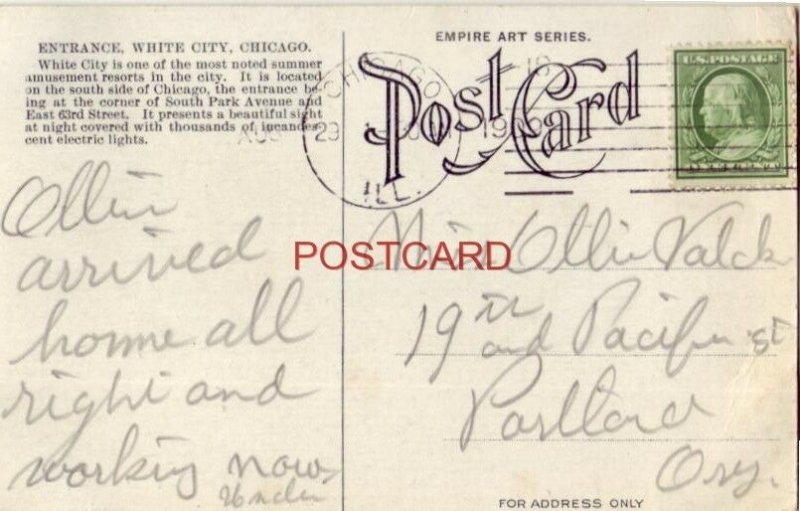 ENTRANCE, WHITE CITY, CHICAGO.
White City is one of the most noted summer
amusement resorts in the city. It is located
on the south side of Chicago, the entrance be-
ing at the corner of South Park Avenue and
East 63rd Street. It presents a beautiful sight
at night covered with thousands of incandes-
cent electric lights.
Ollie
arrived
home all
right and
working now
EMPIRE ART SERIES.
Post Card
CHICAGO
ILL.
1909
U.S. POSTAGE
POSTCARD
Miss Ollie
19th
and Pacific st
Portland
Org.
FOR ADDRESS ONLY